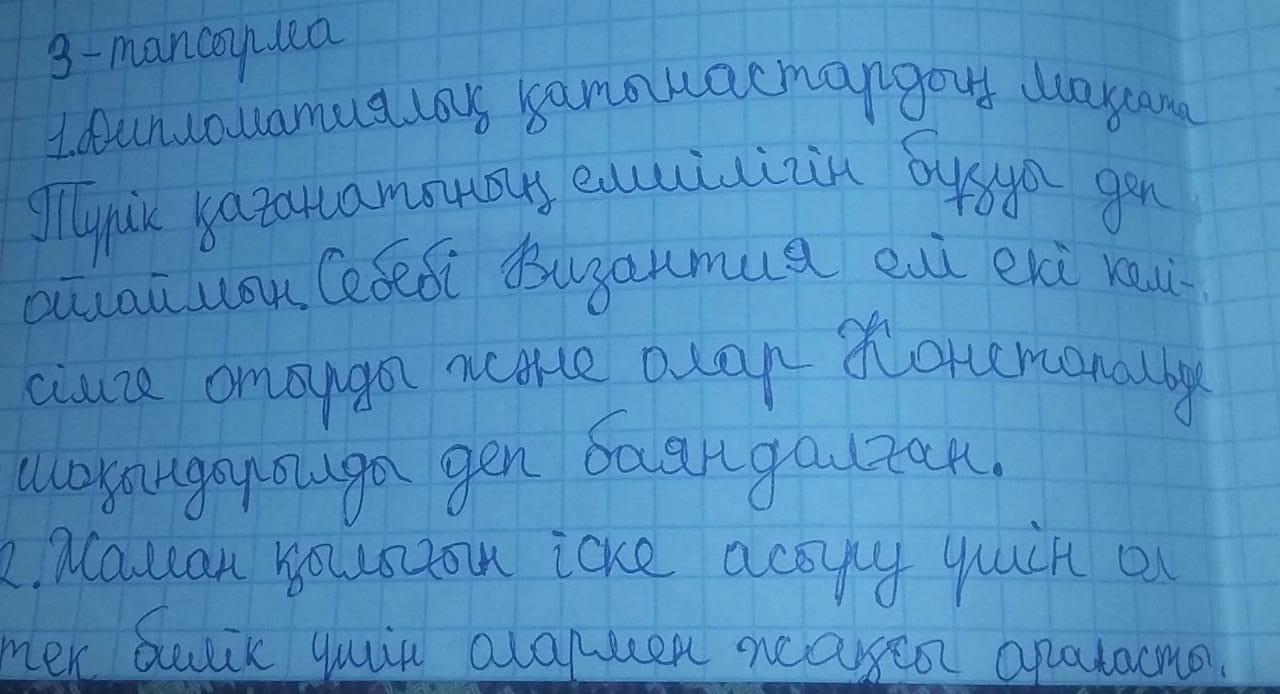 3-тапсырма
1.Дипломатиялық қатынастардың мақсаты
Түрік қағанатының елшілігін бұзуы деп
ойлаймын. Себебі Византия елі екі келі-
сімге отырды және олар Констопольде
шоқындырылды деп баяндалған.
2. Жаман қылығын іске асыру үшін ол
тек билік үшін олармен жақсы араласты.